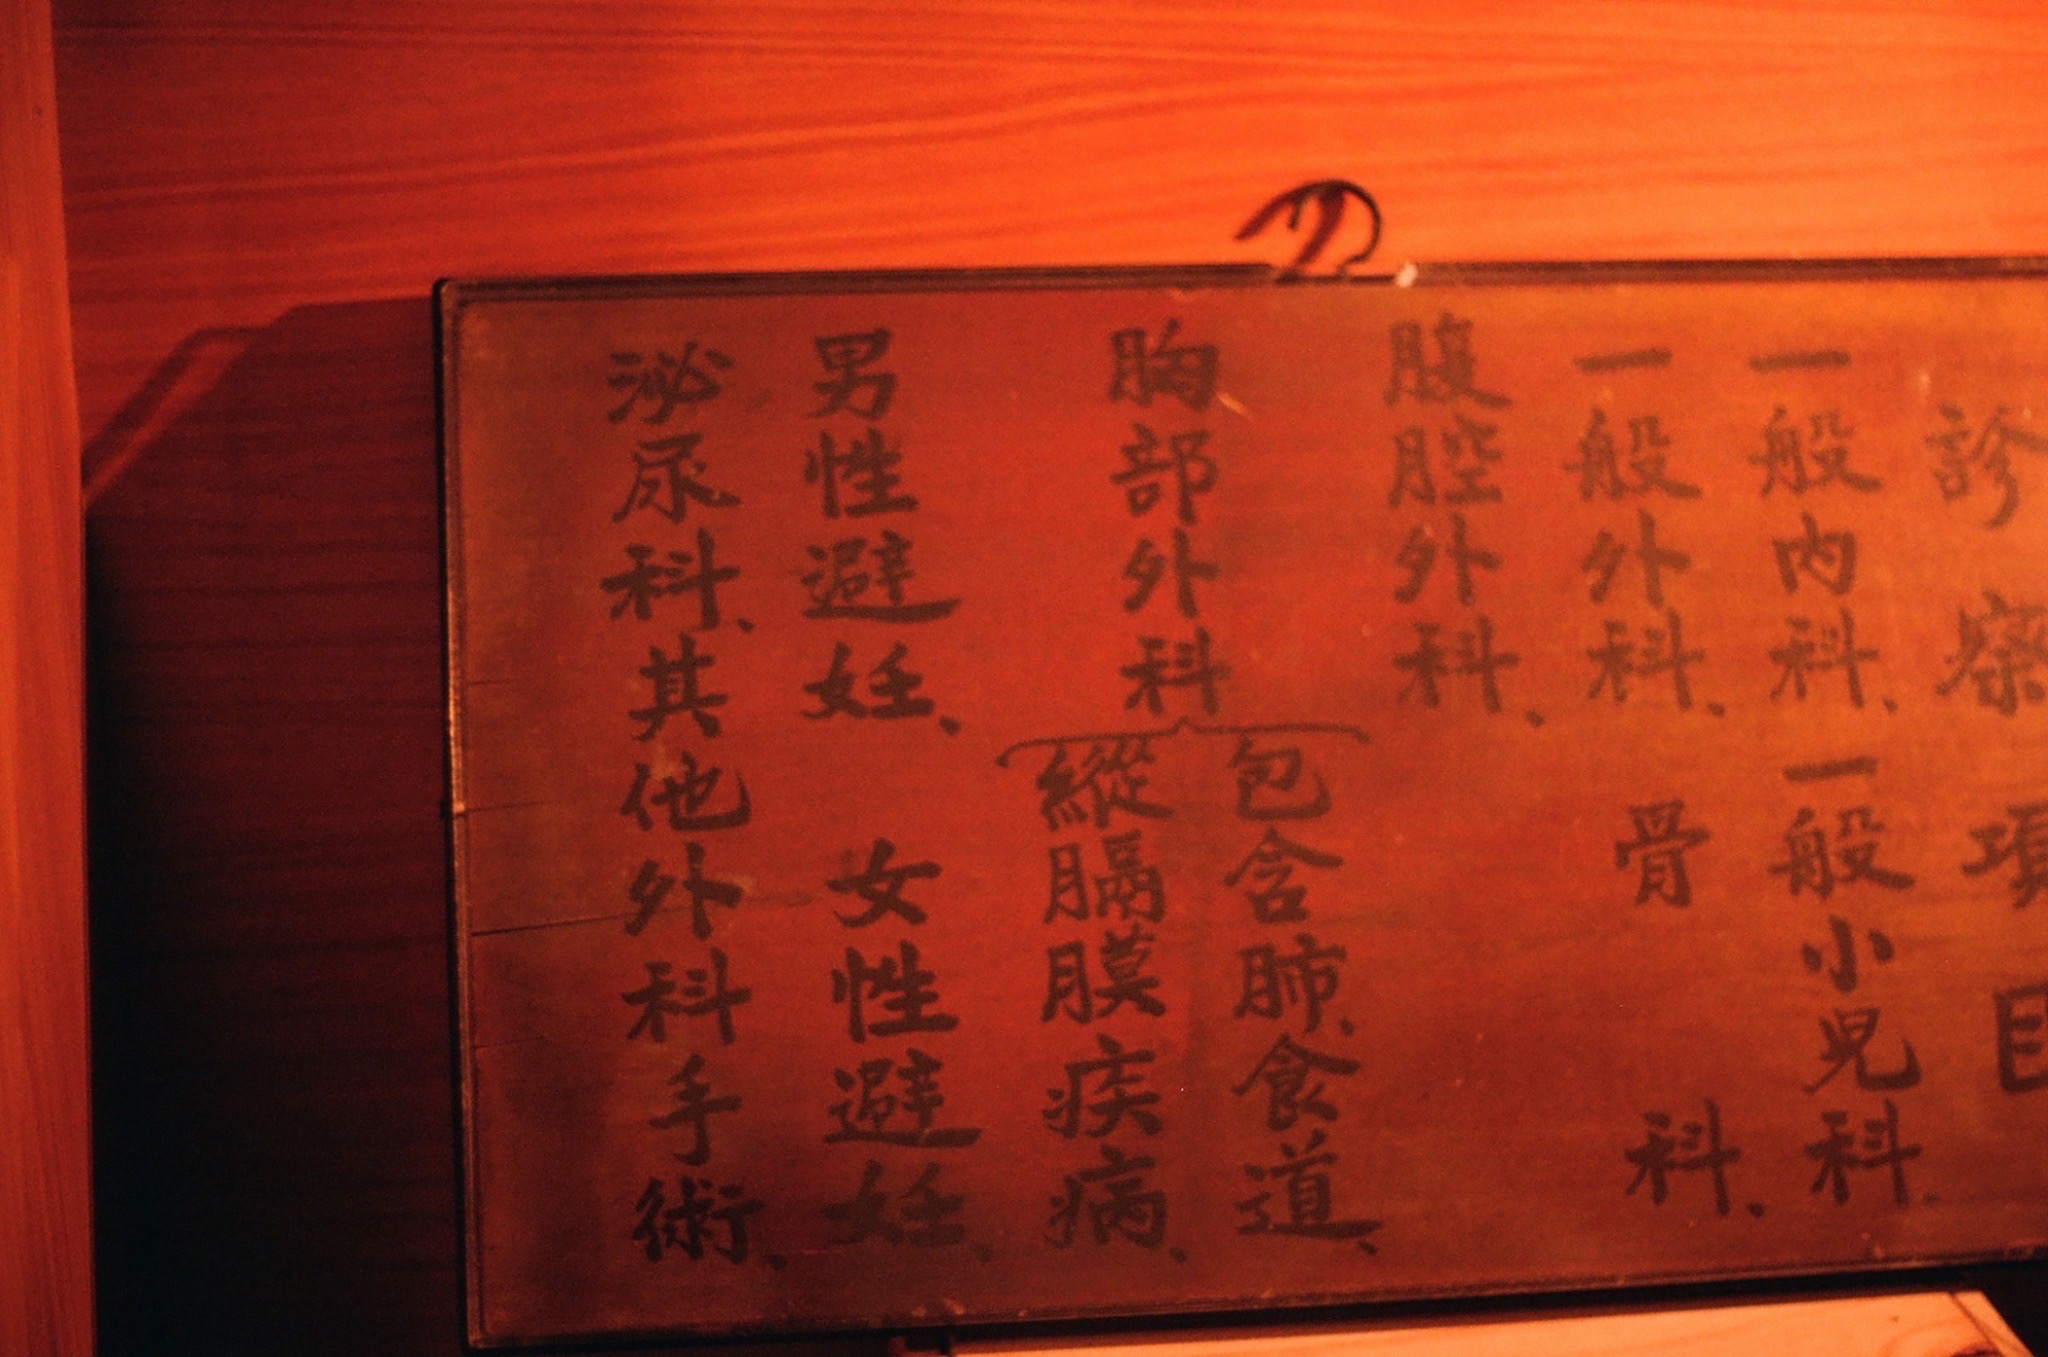 診療項目
一般內科、一般小兒科、
一般外科、骨科、
腹腔外科、
胸部外科
包含肺、食道、
縱膈膜疾病、
男性避妊、女性避妊、
泌尿科、其他外科手術、